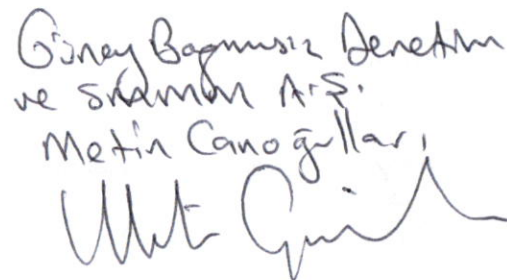 Güney Bağımsız Denetim
ve SMMM A.Ş.
Metin Canoğulları